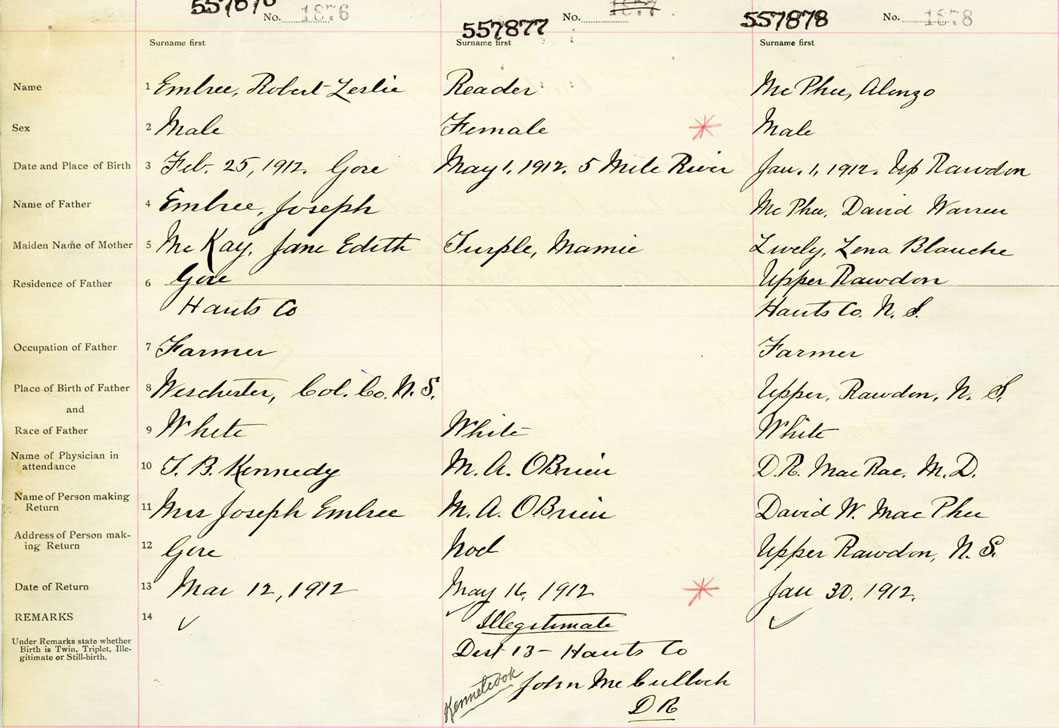 557876 No. 1876 557877 No. 1877 557878 No. 1878
Surname first Surname first Surname first
Name 1 Embree, Robert Leslie Reader Mc Phee, Alonzo
Sex 2 Male Female Male
Date and Place of Birth 3 Feb. 25, 1912. Gore May 1, 1912. 5 Mile River Jan. 1, 1912. Up Rawdon
Name of Father 4 Embree, Joseph Mc Phee, David Warren
Maiden Name of Mother 5 Mc Kay, Jane Edith Turple, Mamie Lively, Lena Blanche
Residence of Father 6 Gore Upper Rawdon
Hants Co Hants Co. N. S.
Occupation of Father 7 Farmer Farmer
Place of Birth of Father 8 Weschester, Col. Co. N. S. Upper, Rawdon, N. S.
and
Race of Father 9 White White White
Name of Physician in
attendance 10 T. B. Kennedy M. A. OBrien D. R. MacRae, M. D.
Name of Person making
Return 11 Mrs Joseph Embree M. A. OBrien David W. Mac Phee
Address of Person mak-
ing Return 12 Gore Noel Upper Rawdon, N. S.
Date of Return 13 Mar 12, 1912 May 16, 1912 Jan 30, 1912.
REMARKS 14 Illegitimate
Under Remarks state whether
Birth is Twin, Triplet, Ille-
gitimate or Still-birth.
Dist 13 - Hants Co
Kennetcook John McCulloch
D R